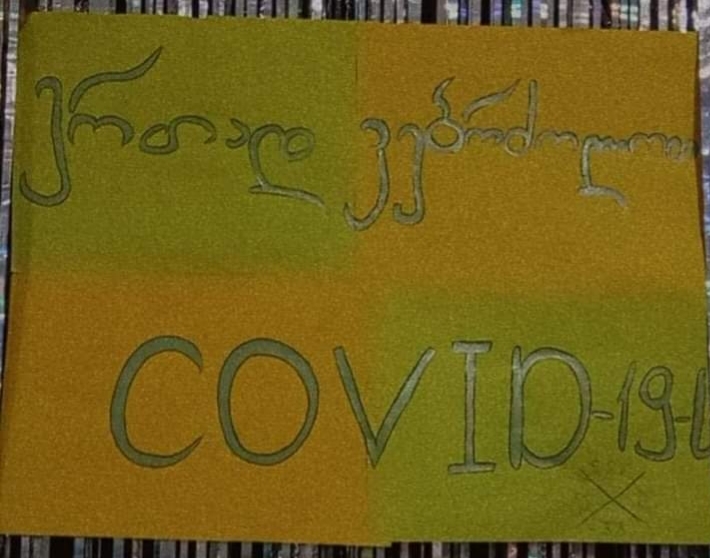 ერთად ვებრძოლოთ
COVID-19-ს